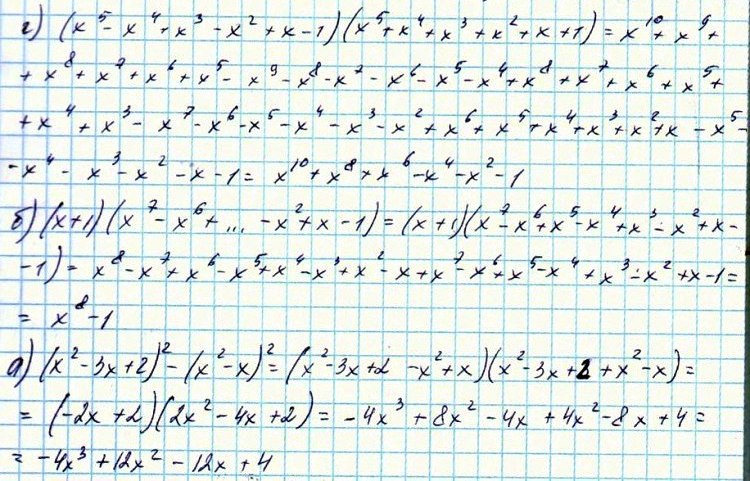 г) (x⁵ - x⁴ + x³ - x² + x - 1)(x⁵ + x⁴ + x³ + x² + x + 1) = x¹⁰ + x⁹ +
+ x⁸ + x⁷ + x⁶ + x⁵ - x⁹ - x⁸ - x⁷ - x⁶ - x⁵ - x⁴ + x⁸ + x⁷ + x⁶ + x⁵ +
+ x⁴ + x³ - x⁷ - x⁶ - x⁵ - x⁴ - x³ - x² + x⁶ + x⁵ + x⁴ + x³ + x² + x - x⁵ -
- x⁴ - x³ - x² - x - 1 = x¹⁰ + x⁸ + x⁶ - x⁴ - x² - 1
б) (x+1)(x⁷ - x⁶ + ... - x² + x - 1) = (x+1)(x⁷ - x⁶ + x⁵ - x⁴ + x³ - x² + x -
- 1) = x⁸ - x⁷ + x⁶ - x⁵ + x⁴ - x³ + x² - x + x⁷ - x⁶ + x⁵ - x⁴ + x³ - x² + x - 1 =
= x⁸ - 1
а) (x² - 3x + 2)² - (x² - x)² = (x² - 3x + 2 - x² + x)(x² - 3x + 2 + x² - x) =
= (-2x + 2)(2x² - 4x + 2) = -4x³ + 8x² - 4x + 4x² - 8x + 4 =
= -4x³ + 12x² - 12x + 4